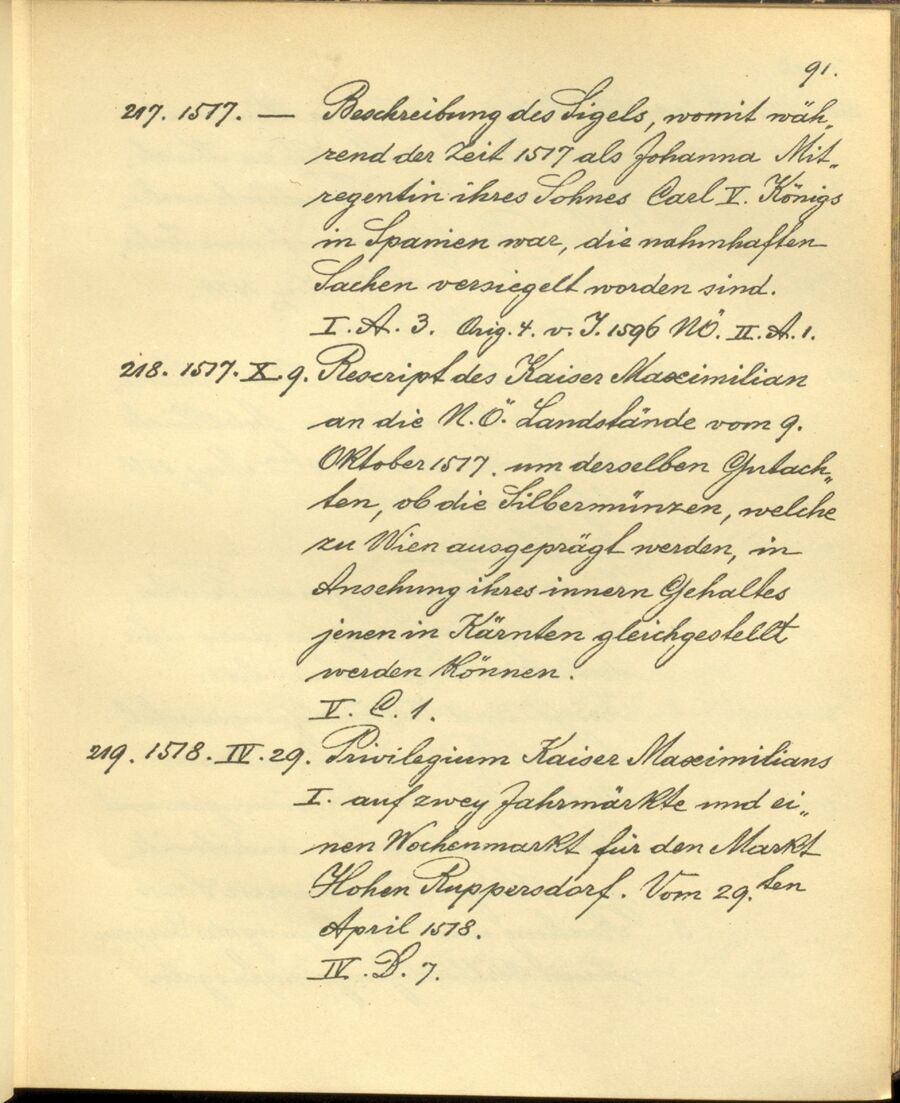 91.
217. 1517. — Beschreibung des Sigels, womit wäh„
rend der Zeit 1517 als Johanna Mit„
regentin ihres Sohnes Carl V. Königs
in Spanien war, die nahmhaften
Sachen versiegelt worden sind.
I. A. 3. Orig. 4. v. J. 1596 NÖ. II. A. 1.
218. 1517. X. 9. Rescript des Kaiser Maximilian
an die N.Ö. Landstände vom 9.
Oktober 1517. um derselben Gutach„
ten, ob die Silbermünzen, welche
zu Wien ausgeprägt werden, in
Ansehung ihres innern Gehaltes
jenen in Kärnten gleichgestellt
werden können.
V. C. 1.
219. 1518. IV. 29. Privilegium Kaiser Maximilians
I. auf zwey Jahrmärkte und ei„
nen Wochenmarkt für den Markt
Hohen Ruppersdorf. Vom 29.ten
April 1518.
IV. D. 7.